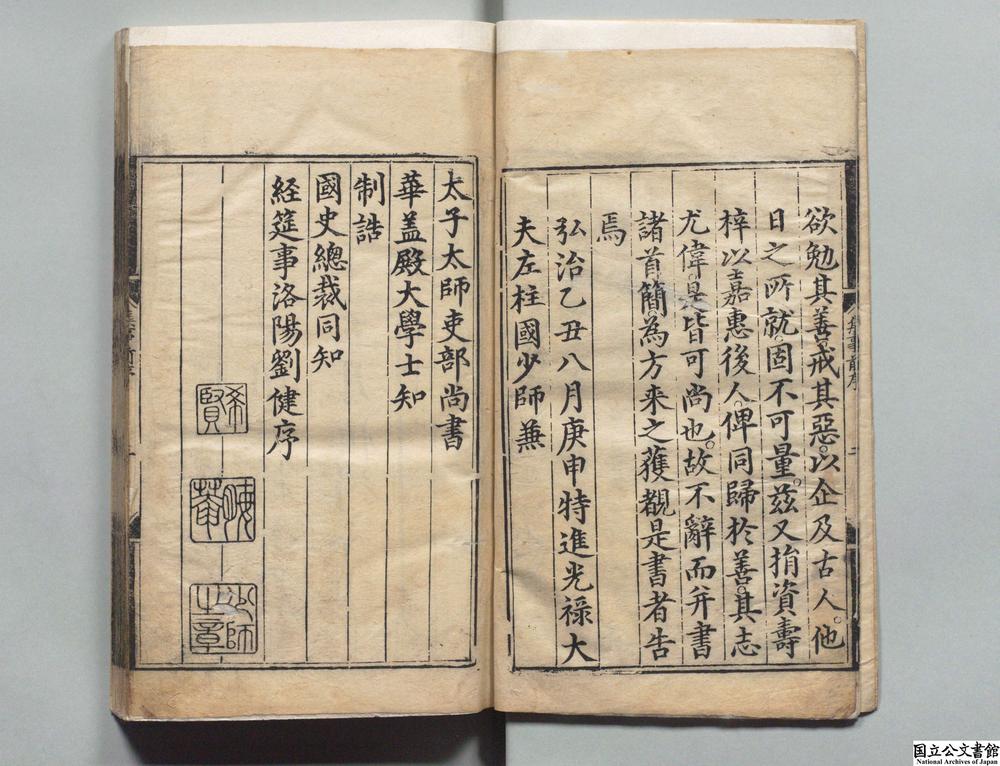 欲勉其善戒其惡。以企及古人。他
日之所就。固不可量。茲又捐資壽
梓以嘉惠後人。俾同歸於善。其志
尤偉。是皆可尚也。故不辭而并書
諸首簡。為方來之獲覩是書者告
焉
弘治乙丑八月庚申特進光祿大
夫左柱國少師兼
太子太師吏部尚書
華盖殿大學士知
制誥
國史總裁同知
経筵事洛陽劉健序
希賢
晦菴
少師之章
国立公文書館
National Archives of Japan